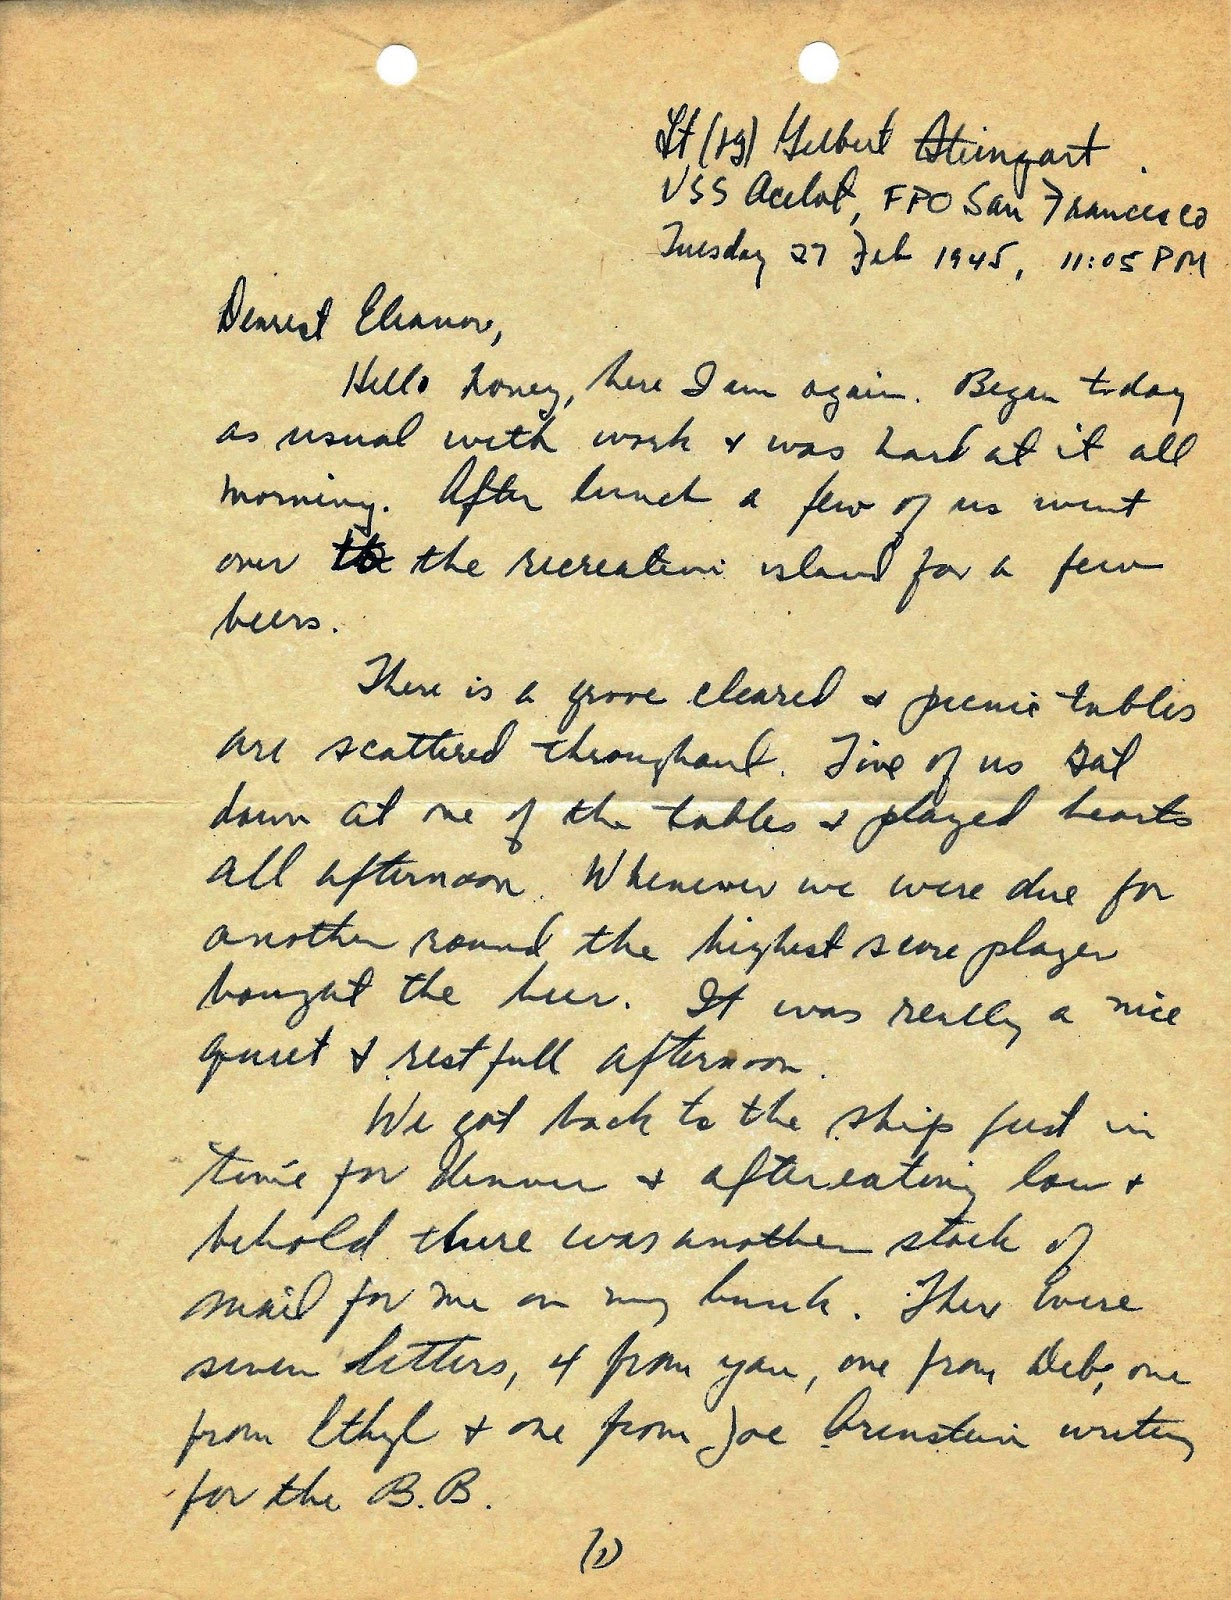 Lt (jg) Gilbert Steingart
USS Ocelot, FPO San Francisco
Tuesday 27 Feb 1945, 11:05 PM
Dearest Eleanor,
Hello honey, here I am again. Began today
as usual with work & was hard at it all
morning. After lunch a few of us went
over to the recreation island for a few
beers.
There is a grove cleared & picnic tables
are scattered throughout. Five of us sat
down at one of the tables & played hearts
all afternoon. Whenever we were due for
another round the highest score player
bought the beer. It was really a nice
quiet & restfull afternoon.
We got back to the ship just in
time for dinner & after eating low &
behold there was another stack of
mail for me on my bunk. There were
seven letters, 4 from you, one from Deb, one
from Ethyl & one from Joe Orenstein writing
for the B.B.
(1)